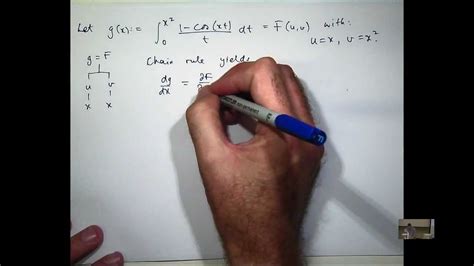 Let g(x):= ∫₀^{x²} (1-cos(xt))/t dt = F(u,v) with:
u=x, v=x².
g = F
u v
x x
Chain rule yields
dg/dx = ∂F/